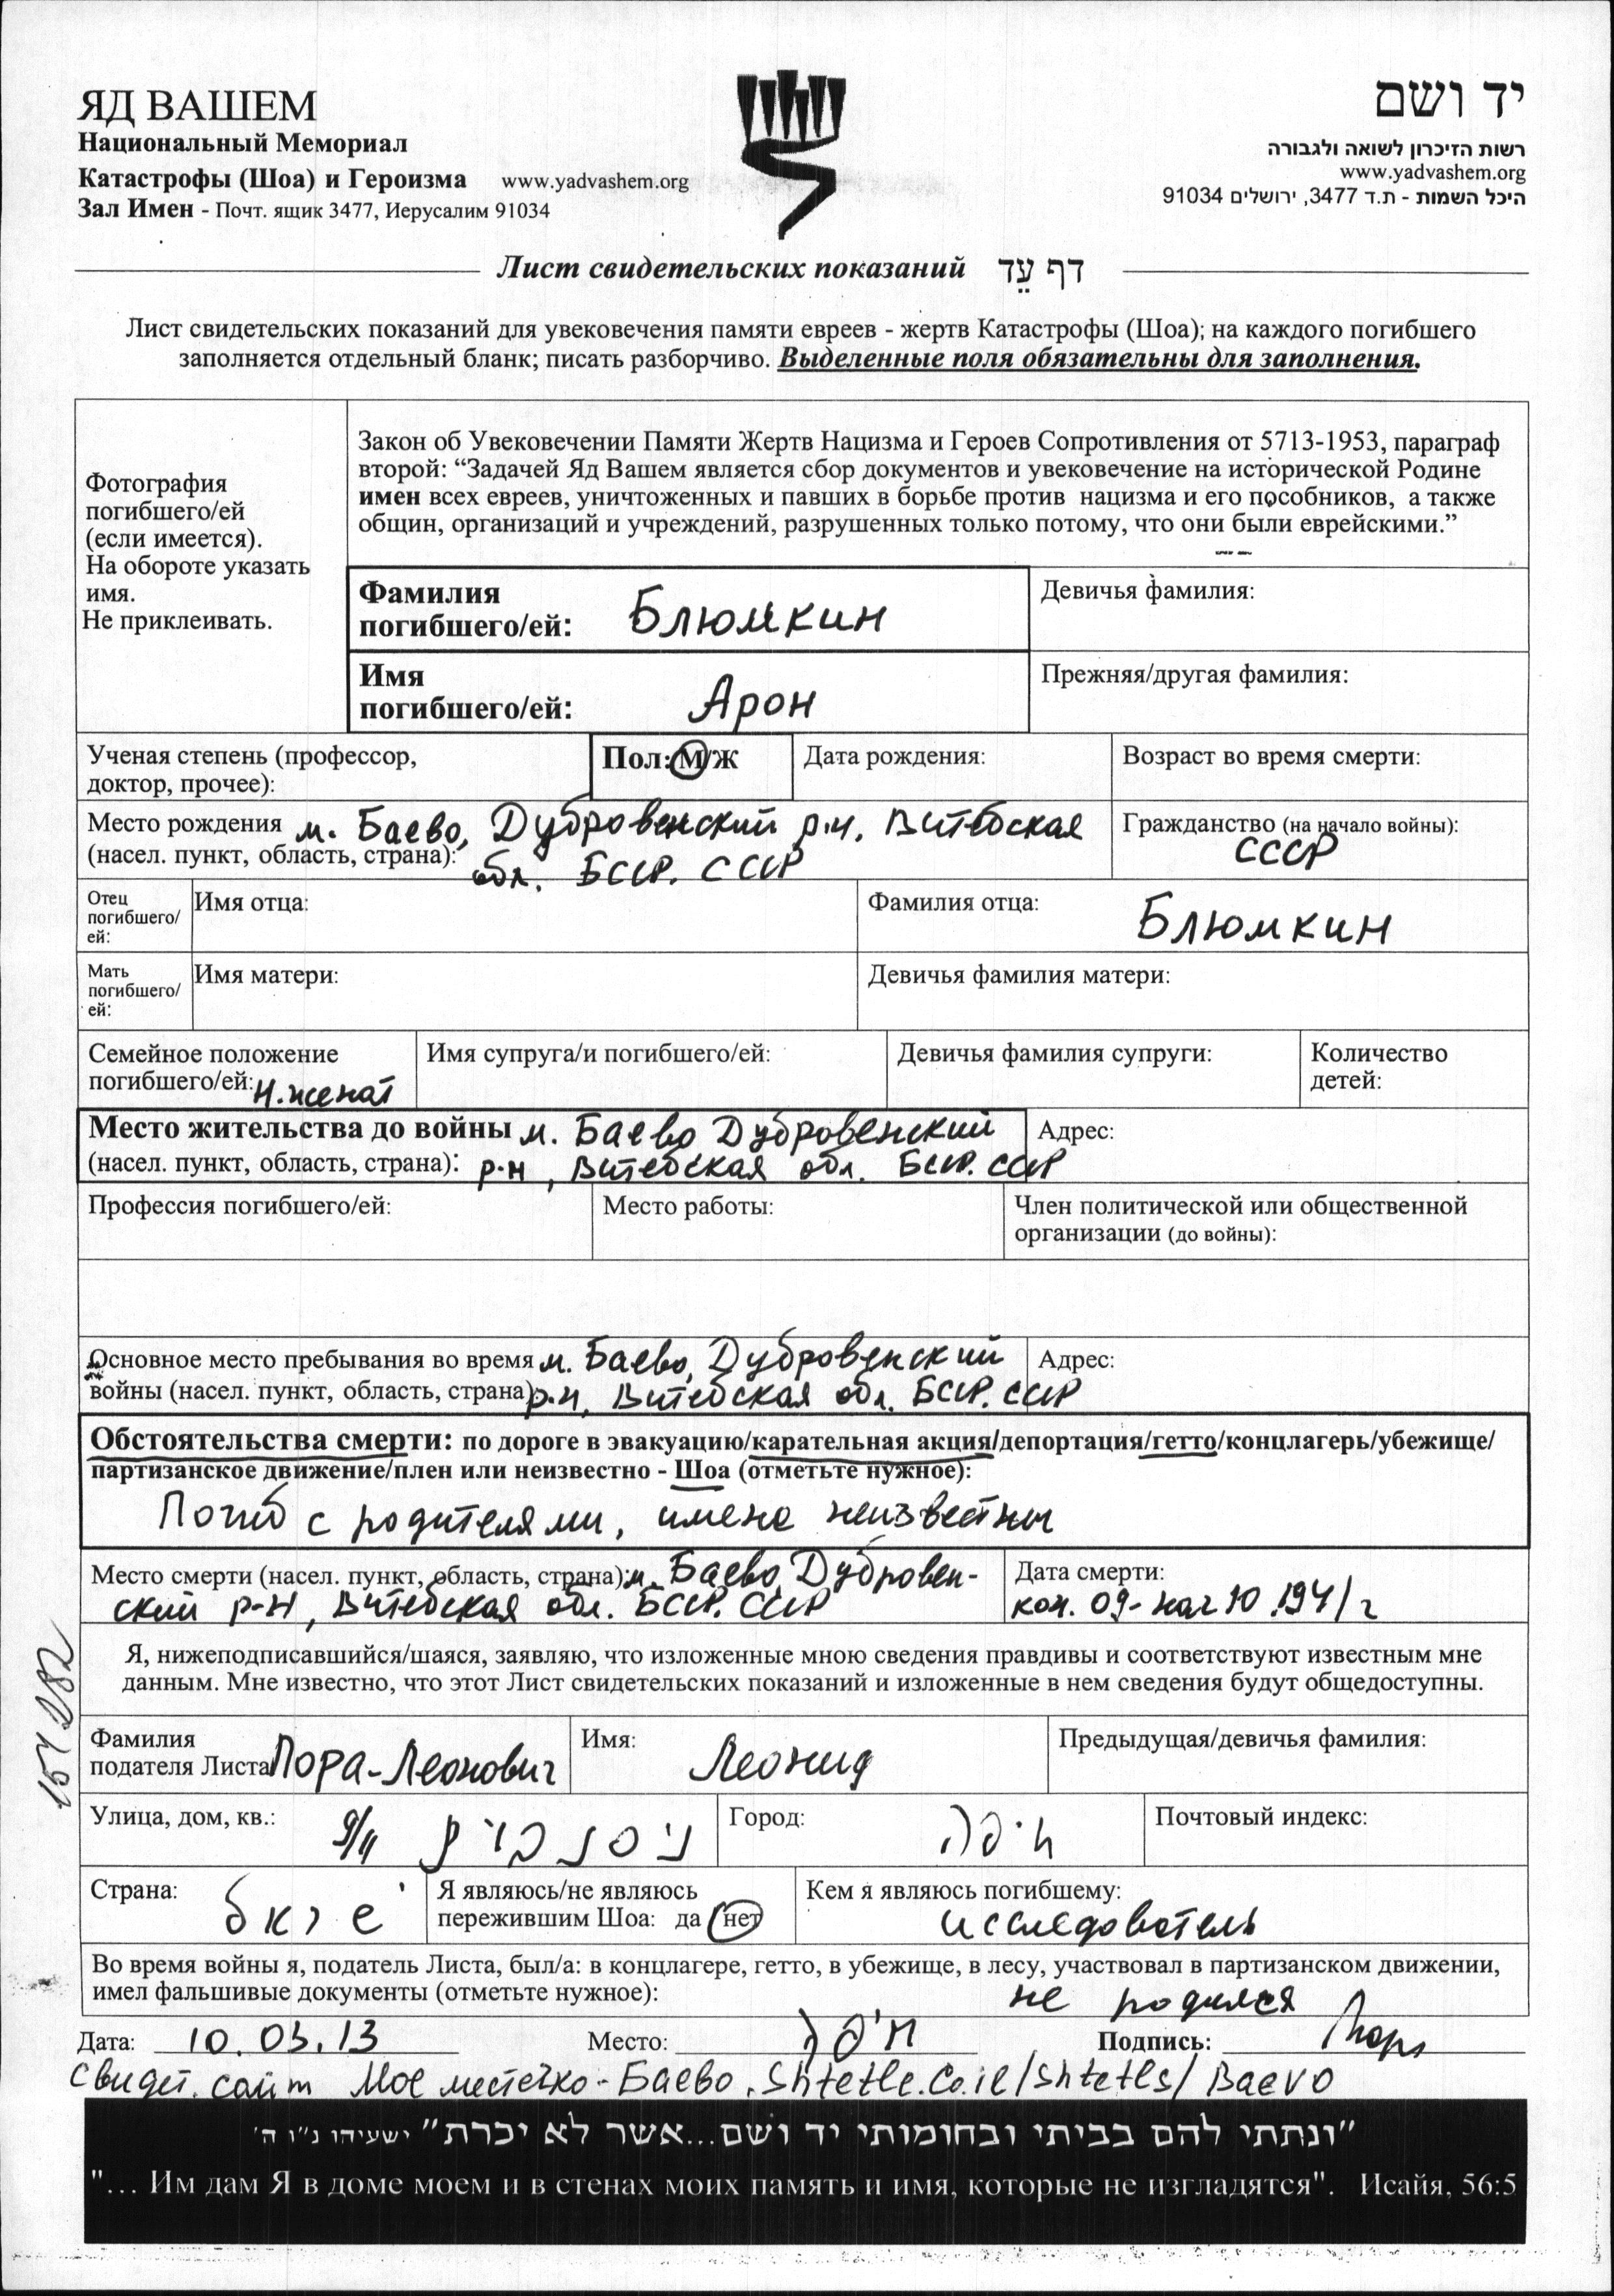 ЯД ВАШЕМ
Национальный Мемориал
Катастрофы (Шоа) и Героизма www.yadvashem.org
Зал Имен - Почт. ящик 3477, Иерусалим 91034
יד ושם
רשות הזיכרון לשואה ולגבורה
www.yadvashem.org
היכל השמות - ת.ד 3477, ירושלים 91034
Лист свидетельских показаний דף עֵד
Лист свидетельских показаний для увековечения памяти евреев - жертв Катастрофы (Шоа); на каждого погибшего
заполняется отдельный бланк; писать разборчиво. Выделенные поля обязательны для заполнения.
Фотография
погибшего/ей
(если имеется).
На обороте указать
имя.
Не приклеивать.
Закон об Увековечении Памяти Жертв Нацизма и Героев Сопротивления от 5713-1953, параграф
второй: “Задачей Яд Вашем является сбор документов и увековечение на исторической Родине
имен всех евреев, уничтоженных и павших в борьбе против нацизма и его пособников, а также
общин, организаций и учреждений, разрушенных только потому, что они были еврейскими.”
Фамилия
погибшего/ей: Блюмкин
Девичья фамилия:
Имя
погибшего/ей: Арон
Прежняя/другая фамилия:
Ученая степень (профессор,
доктор, прочее):
Пол: М/Ж
Дата рождения:
Возраст во время смерти:
Место рождения м. Баево, Дубровенский р.н, Витебская
(насел. пункт, область, страна): обл. БССР. СССР
Гражданство (на начало войны):
СССР
Отец
погибшего/
ей:
Имя отца:
Фамилия отца: Блюмкин
Мать
погибшего/
ей:
Имя матери:
Девичья фамилия матери:
Семейное положение
погибшего/ей: Н.женат
Имя супруга/и погибшего/ей:
Девичья фамилия супруги:
Количество
детей:
Место жительства до войны м. Баево Дубровенский
(насел. пункт, область, страна): р-н, Витебская обл. БССР. СССР
Адрес:
Профессия погибшего/ей:
Место работы:
Член политической или общественной
организации (до войны):
Основное место пребывания во время м. Баево, Дубровенский
войны (насел. пункт, область, страна): р.н, Витебская обл. БССР. СССР
Адрес:
Обстоятельства смерти: по дороге в эвакуацию/карательная акция/депортация/гетто/концлагерь/убежище/
партизанское движение/плен или неизвестно - Шоа (отметьте нужное):
Погиб с родителями, имена неизвестны
Место смерти (насел. пункт, область, страна): м. Баево, Дубровен-
ский р-н, Витебская обл. БССР. СССР
Дата смерти:
кон. 09- нач 10.1941 г
Я, нижеподписавшийся/шаяся, заявляю, что изложенные мною сведения правдивы и соответствуют известным мне
данным. Мне известно, что этот Лист свидетельских показаний и изложенные в нем сведения будут общедоступны.
Фамилия
подателя Листа Лора-Леонович
Имя: Леонид
Предыдущая/девичья фамилия:
Улица, дом, кв.:
Город: חיפה
Почтовый индекс:
Страна:
Я являюсь/не являюсь
пережившим Шоа: да нет
Кем я являюсь погибшему:
исследователь
Во время войны я, податель Листа, был/а: в концлагере, гетто, в убежище, в лесу, участвовал в партизанском движении,
имел фальшивые документы (отметьте нужное): не родился
Дата: 10.03.13 Место: חיפה Подпись:
Свидет. сайт Мое местечко-Баево. Shtetle.Co.il/Shtetls/Baevo
"ונתתי להם בביתי ובחומותי יד ושם...אשר לא יכרת" ישעיהו נ"ו ה'
"... Им дам Я в доме моем и в стенах моих память и имя, которые не изгладятся". Исайя, 56:5